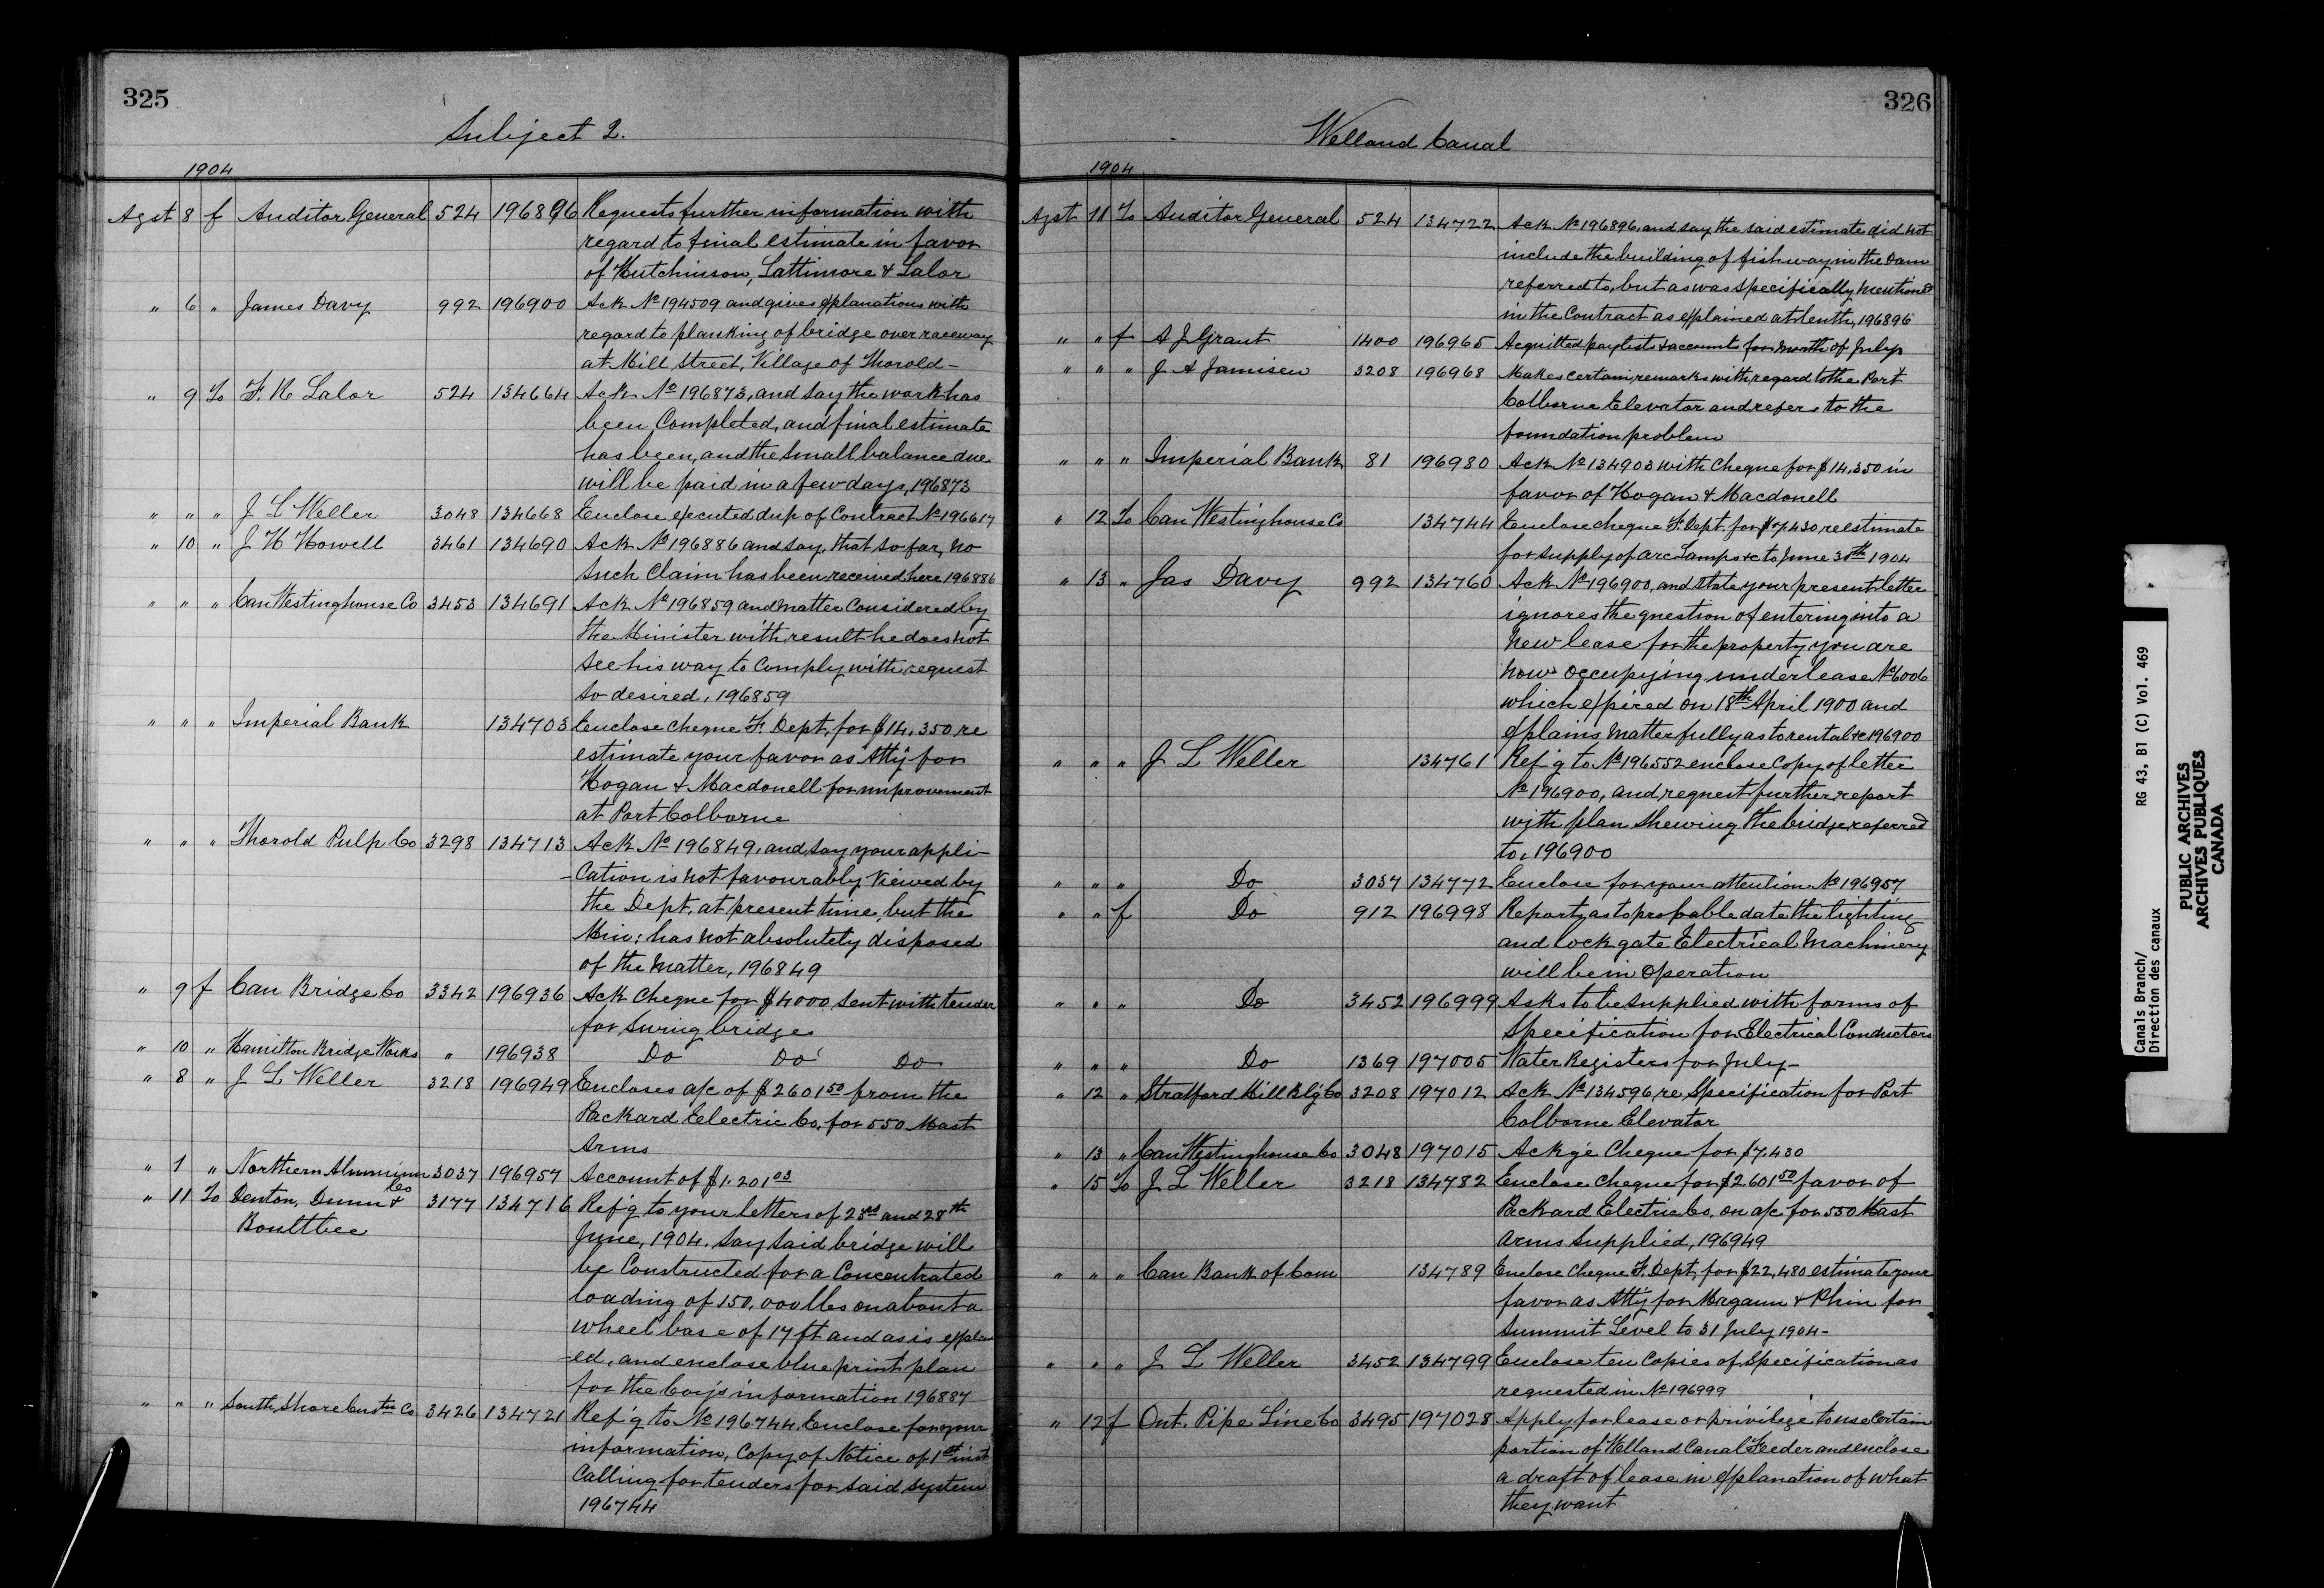 325
Subject 2.
1904
Agst 8 f Auditor General 524 196896 Requests further information with
regard to final estimate in favor
of Hutchinson, Lattimore & Lalor
" 6 " James Davy 992 196900 Ack No 194509 and gives explanations with
regard to planking of bridge over raceway
at Mill Street, Village of Thorold -
" 9 To F. R Lalor 524 134664 Ack No 196873, and say the work has
been Completed, and final estimate
has been, and the small balance due
will be paid in a few days, 196873
" " " J L Weller 3048 134668 Enclose executed dup of Contract No 196617
" 10 " J H Howell 3461 134690 Ack No 196886 and say, that so far, no
such Claim has been received here 196886
" " " Can Westinghouse Co 3453 134691 Ack No 196859 and matter Considered by
the Minister with result he does not
see his way to Comply with request
so desired, 196859
" " " Imperial Bank 134703 Enclose cheque F. Dept, for $14,350 re
estimate your favor as Atty for
Hogan & Macdonell for improvement
at Port Colborne
" " " Thorold Pulp Co 3298 134713 Ack No 196849, and say your appli-
-cation is not favourably viewed by
the Dept. at present time, but the
Min: has not absolutely disposed
of the matter, 196849
" 9 f Can Bridge Co 3342 196936 Ack cheque for $4000, sent with tender
for swing bridge
" 10 " Hamilton Bridge Works " 196938 Do Do Do
" 8 " J L Weller 3218 196949 Encloses a/c of $2601 50 from the
Packard Electric Co. for 550 Mast
Arms
" 1 " Northern Aluminum Co 3037 196957 Account of $1.201 03
" 11 To Denton, Dunn & 3177 134716 Ref'g to your letters of 23rd and 28th
Boultbee
June, 1904. Say said bridge will
be Constructed for a Concentrated
loading of 150,000 lbs on about a
wheel base of 17 ft and as is explain
-ed, and enclose blue print plan
for the Coy's information 196887
" " " South Shore Constn Co 3426 134721 Ref'g to No 196744. Enclose for your
information, Copy of Notice of 1st inst
Calling for tenders for said system
196744
326
Welland Canal
1904
Agst 11 To Auditor General 524 134722 Ack No 196896, and say the said estimate did not
include the building of fishway in the Dam
referred to, but as was specifically mentioned
in the Contract as explained at lenth, 196896
" " f A J Grant 1400 196965 Acquitted paylists & accounts for month of July
" " " J A Jamisen 3208 196968 Makes certain remarks with regard to the Port
Colborne Elevator and refers to the
foundation problem
" " " Imperial Bank 81 196980 Ack No 134903 with Cheque for $14,350 in
favor of Hogan & Macdonell
" 12 To Can Westinghouse Co 134744 Enclose cheque F. Dept. for $7,430, re estimate
for supply of arc Lamps &c to June 30th 1904
" 13 " Jas Davy 992 134760 Ack No 196900, and state your present letter
ignores the question of entering into a
new lease for the property you are
now occupying under lease No 6006
which expired on 18th April 1900 and
explains matter fully as to rental &c 196900
" " " J L Weller 134761 Ref'g to No 196552 enclose Copy of letter
No 196900, and request further report
with plan shewing the bridge referred
to, 196900
" " " Do 3037 134772 Enclose for your attention No 196957
" " f Do 912 196998 Reports as to probable date the lighting
and lock gate Electrical Machinery
will be in operation
" " " Do 3452 196999 Asks to be supplied with forms of
Specification for Electrical Conductors
" " " Do 1369 197005 Water Registers for July -
" 12 " Stratford Mill Bl'g Co 3208 197012 Ack No 134596, re Specification for Port
Colborne Elevator
" 13 " Can Westinghouse Co 3048 197015 Ackg'e Cheque for $7,430
" 15 To J L Weller 3218 134782 Enclose Cheque for $2.601 50 favor of
Packard Electric Co. on a/c for 550 Mast
arms supplied, 196949
" " " Can Bank of Com 134789 Enclose Cheque F. Dept, for $22,480 estimate your
favor as Atty for Magann & Phin for
Summit Level to 31 July 1904 -
" " " J L Weller 3452 134799 Enclose ten Copies of Specification as
requested in No 196999
" 12 f Ont. Pipe Line Co 3495 197028 Apply for lease or privilege to use Certain
portion of Welland Canal Feeder and enclose
a draft of lease in explanation of what
they want
Canals Branch/
Direction des canaux
RG 43, B1 (C) Vol. 469
PUBLIC ARCHIVES
ARCHIVES PUBLIQUES
CANADA